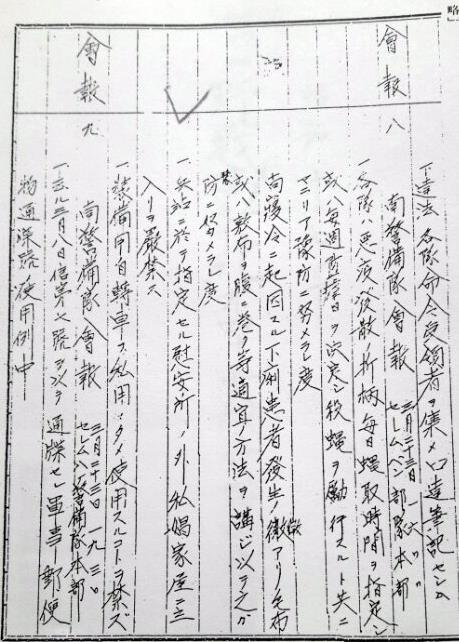 會報 八
下達法 各隊命令受領者ヲ集メ口達筆記セシム
南警備隊會報 三月二十三日
セレムバン部隊本部
一、各隊ハ悪疫 折柄毎日蠅取時間ヲ指定シ
或ハ毎週 日ヲ決定シ殺蠅ヲ励行スルト共ニ
マラリア豫防ニ努メラレ度
尚寝冷ニ起因スル下痢患者發生ノ徴アリ毛布
或ハ敷布ヲ腹ニ巻ク等適宜方法ヲ講ジ以テ之ガ
防ニ努メラレ度
一、兵站ニ於テ指定セル慰安所ノ外私娼家屋ニ
入リヲ嚴禁ス
一、装備用自轉車ヲ私用ノタメ使用スルコトヲ禁ズ
會報 九
南警備隊會報 三月二十三日 一九、三〇
セレムバン警備隊本部
一、去ル三月八日信第七號ヲ以テ通牒セシ軍事郵便
物通 路使用例中